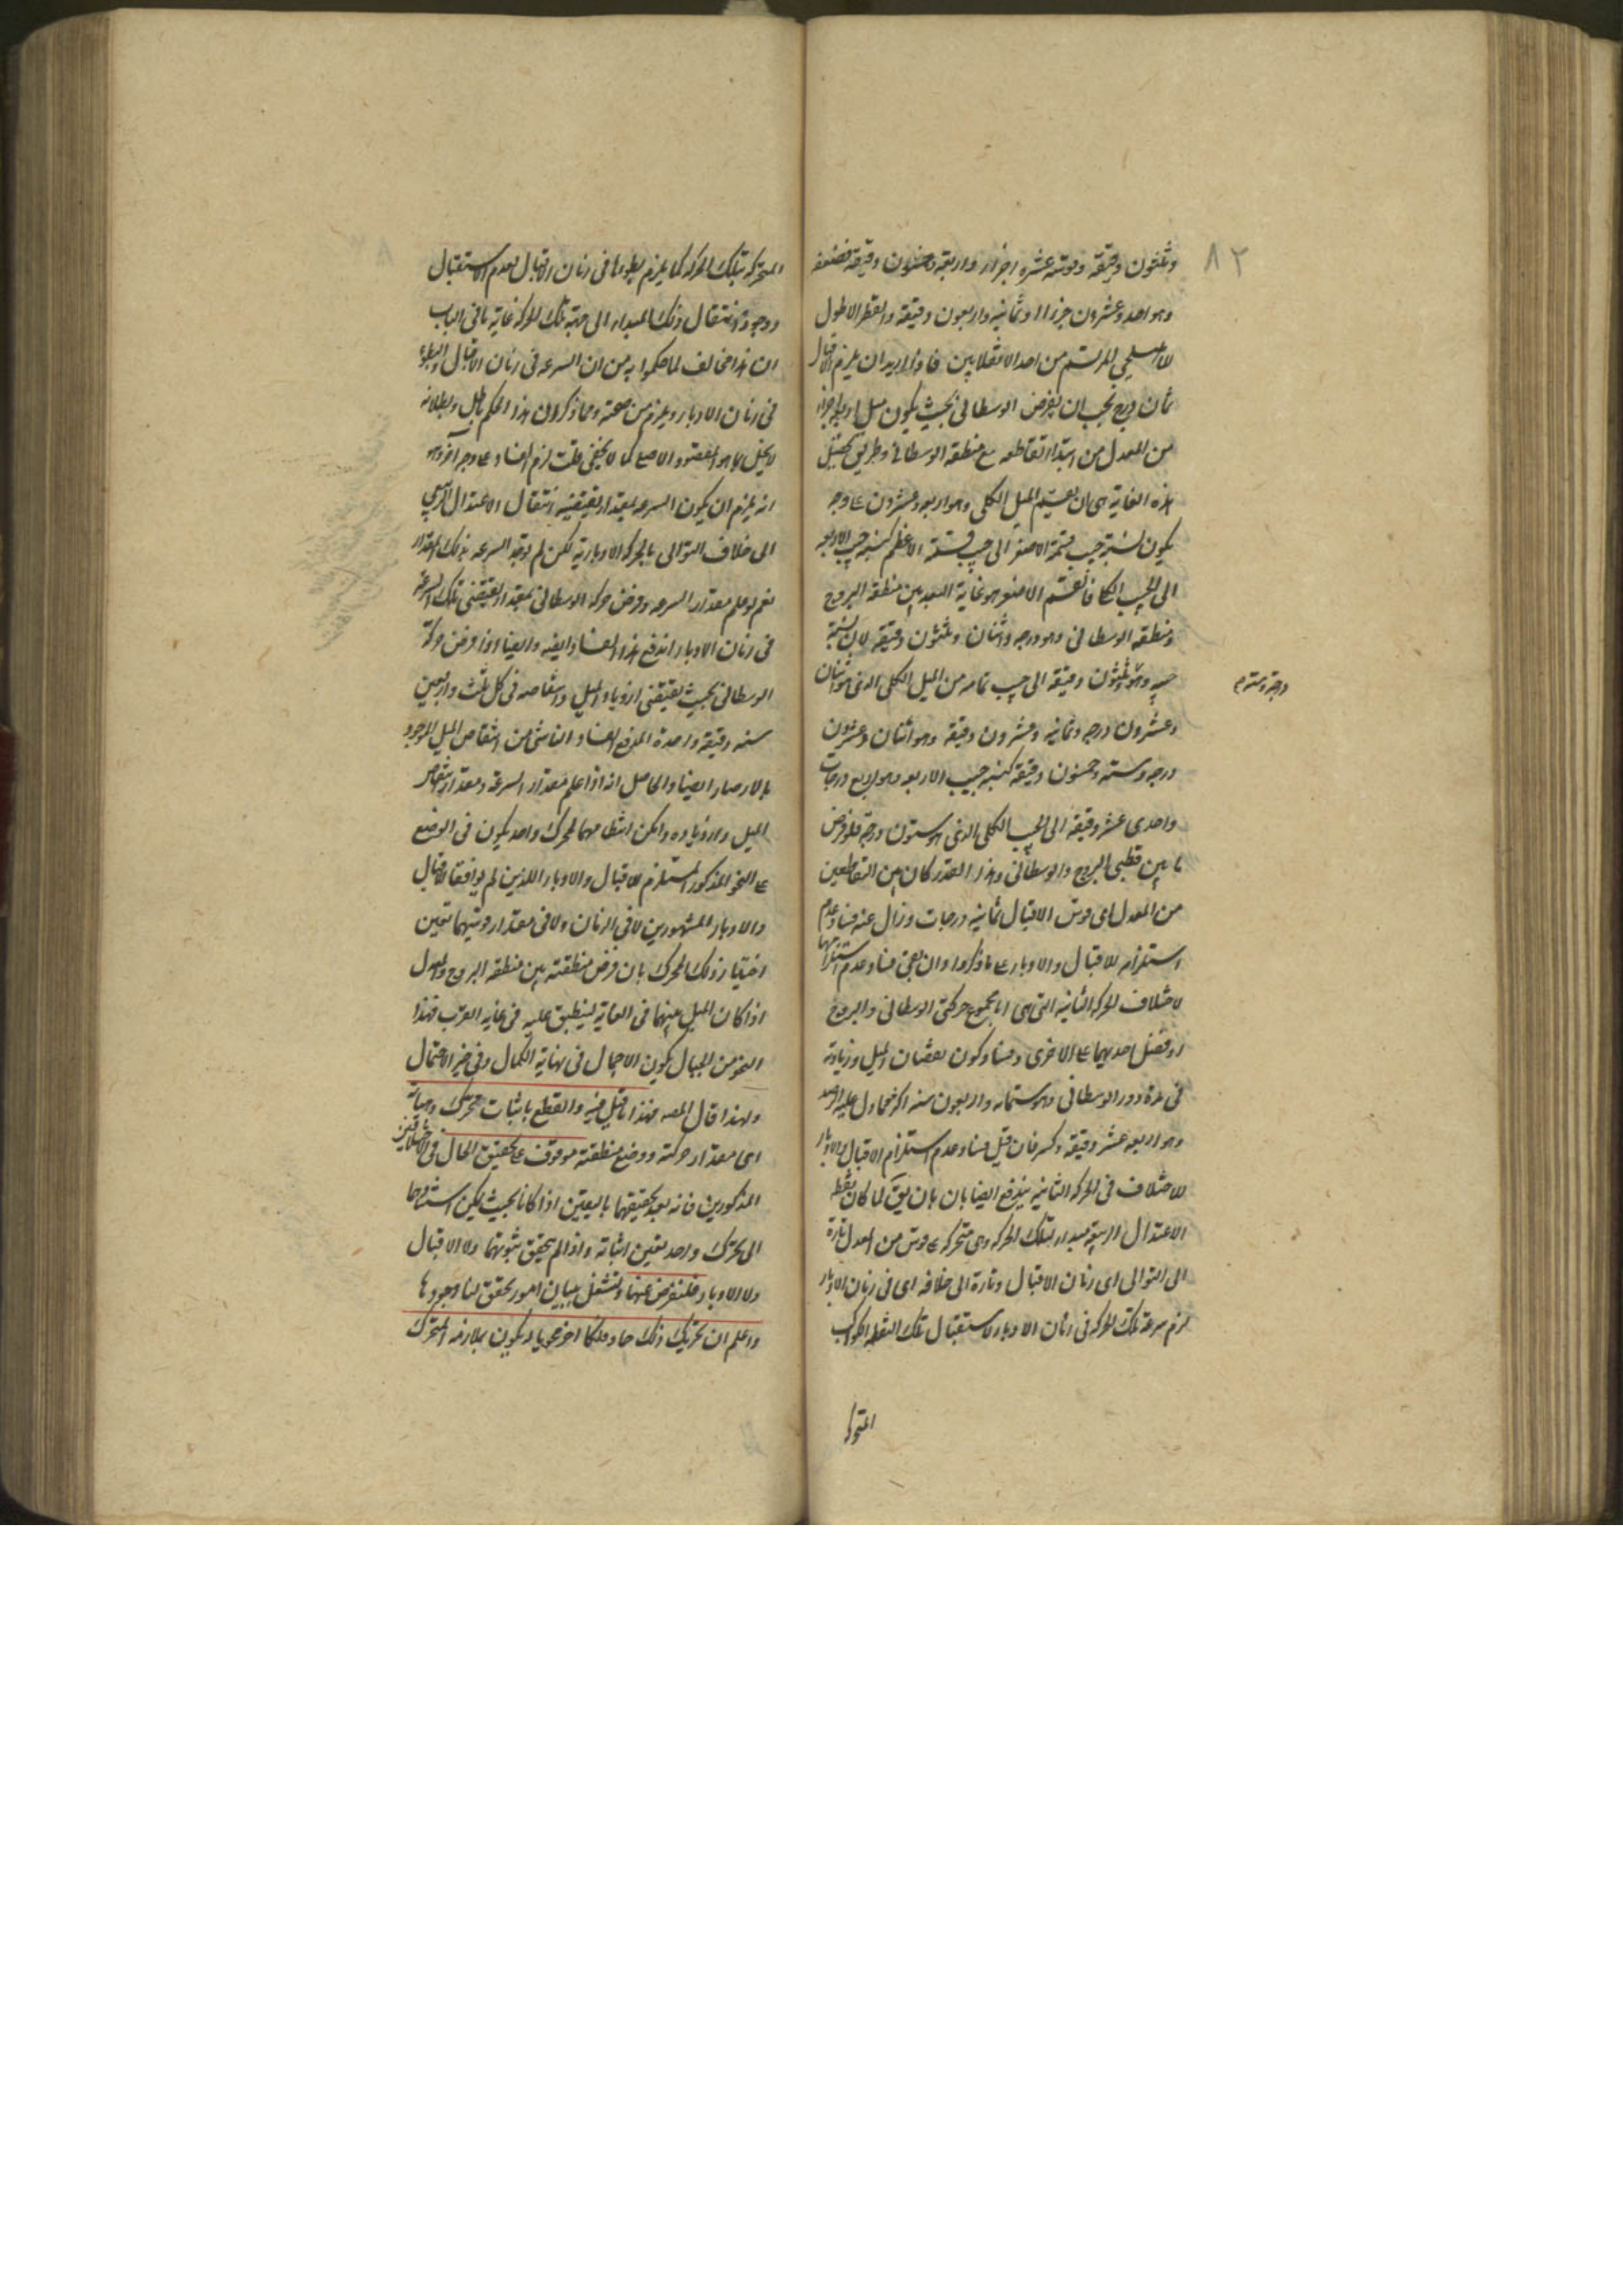 ٨٢
وثلثون دقيقة وقوسه عشرة اجزاء واربعة وخمسون دقيقة فضعفه
وهو احد وعشرون جزءا وثمانية واربعون دقيقة والقطر الاطول
من احد الانقلابين فاذا اريد ان يلزم اقبال
ثمان درج يجب ان يفرض الوسطانى بحيث يكون ميل اربعة اجزاء
من المعدل من ابتداء تقاطعه مع منطقة الوسطانى وطريق تحصيل
هذه الغاية هى ان يقسم الميل الكلى وهو اربعة وعشرون على وجه
يكون نسبة جيب قسمة الاصغر الى جيب قسمة الاعظم كنسبة جيب الاربعة
الى الجيب الكلى فالقسم الاصغر هو غاية البعد بين منطقة البروج
ومنطقة الوسطانى وهو درجة واثنان وثلثون دقيقة لان نسبة
جيبه وهو وثلثون دقيقة الى جيب تمامه من الميل الكلى الذى هو اثنان
وعشرون درجة وثمانية وعشرون دقيقة وهو اثنان وعشرون
درجة وستة وخمسون دقيقة كنسبة جيب الاربعة وهو اربع درجات
واحدى عشر دقيقة الى الجيب الكلى الذى هو ستون درجة فلو فرض
ما بين قطبى البروج والوسطانى هذا القدر كان بين التقاطعين
من المعدل اى قوس الاقبال ثمانية درجات وزال عنه فساد عدم
استلزامه للاقبال والادبار على ما ذكروا وان بقى فساد عدم استلزامها
لاختلاف الحركة الثانية التى هى اما مجموع حركتى الوسطانى والبروج
او فضل احديهما على الاخرى وفساد كون نقصان الميل وزيادته
فى مدة دور الوسطانى وهو ستمائة واربعون سنة اكثر مما دل عليه الرصد
وهو اربعة عشر دقيقة وكسر فان قيل فساد عدم استلزام الاقبال والادبار
للاختلاف فى الحركة الثانية يندفع ايضا بان يق لما كان نقطة
الاعتدال الربيعى مبدا لتلك الحركة وهى متحركة على قوس من المعدل تارة
الى التوالى اى زمان الاقبال وتارة الى خلافه اى فى زمان الادبار
لزم سرعة تلك الحركة فى زمان الادبار لاستقبال تلك النقطة الكواكب
المتحركة
المتحركة بتلك الحركة كما يلزم بطوءها فى زمان الاقبال لعدم الاستقبال
ووجود انتقال ذلك المبداء الى جهة تلك الحركة غاية ما فى الباب
ان هذا مخالف لما حكموا به من ان السرعة فى زمان الاقبال والبطوء
فى زمان الادبار ويلزم من صحته وما ذكر ان هذا الحكم باطل وبطلانه
لا يخل بما هو المقصود الاصلى كما لا يخفى قلت لزم الفساد على وجه آخر وهو
انه يلزم ان يكون السرعة بمقدار يقتضيه انتقال الاعتدال الربيعى
الى خلاف التوالى بالحركة الادبارية لكن لم يوجد السرعة بذلك المقدار
نعم لو علم مقدار السرعة وفرض حركة الوسطانى بمقدار يقتضى تلك السرعة
فى زمان الادبار اندفع هذا الفساد ايضا وايضا اذا فرض حركة
الوسطانى بحيث يقتضى ازدياد الميل وانتقاصه فى كل ثلث واربعين
سنة دقيقة واحدة اندفع الفساد الناشى من انتقاص الميل الموجود
بالارصاد ايضا والحاصل انه اذا علم مقدار السرعة ومقدار انتقاص
الميل وازدياده وامكن انتظامهما لمحرك واحد يكون فى الوضع
على النحو المذكور المستلزم للاقبال والادبار اللذين لم يوافقا الاقبال
والادبار المشهورين لا فى الزمان ولا فى مقدار قوسيهما تعين
اختيار ذلك المحرك بان فرض منطقته بين منطقة البروج والمعدل
اذا كان الميل بينهما فى الغاية لينطبق عليه فى غاية القرب فهذا
النحو من الجبال يكون الاجمال فى نهاية الكمال وفى حيز الاحتمال
ولهذا قال المصـ فهذا ما قيل فيه والقطع باثبات محرك وهيأته
اى مقدار حركته ووضع منطقته موقوف على تحقيق الحال فى الاختلافين
المذكورين فانه بعد تحقيقهما باليقين اذا كانا بحيث يمكن استنادهما
الى محرك واحد يتعين اثباته واذا لم يتحقق ثبوتهما ولا الاقبال
ولا الادبار فلنعرض عنها ونشتغل ببيان امور تحقق لنا وجودها
واعلم ان تحريك فلك حاو فلكا اخر محويا له يكون بملازمة المتحرك